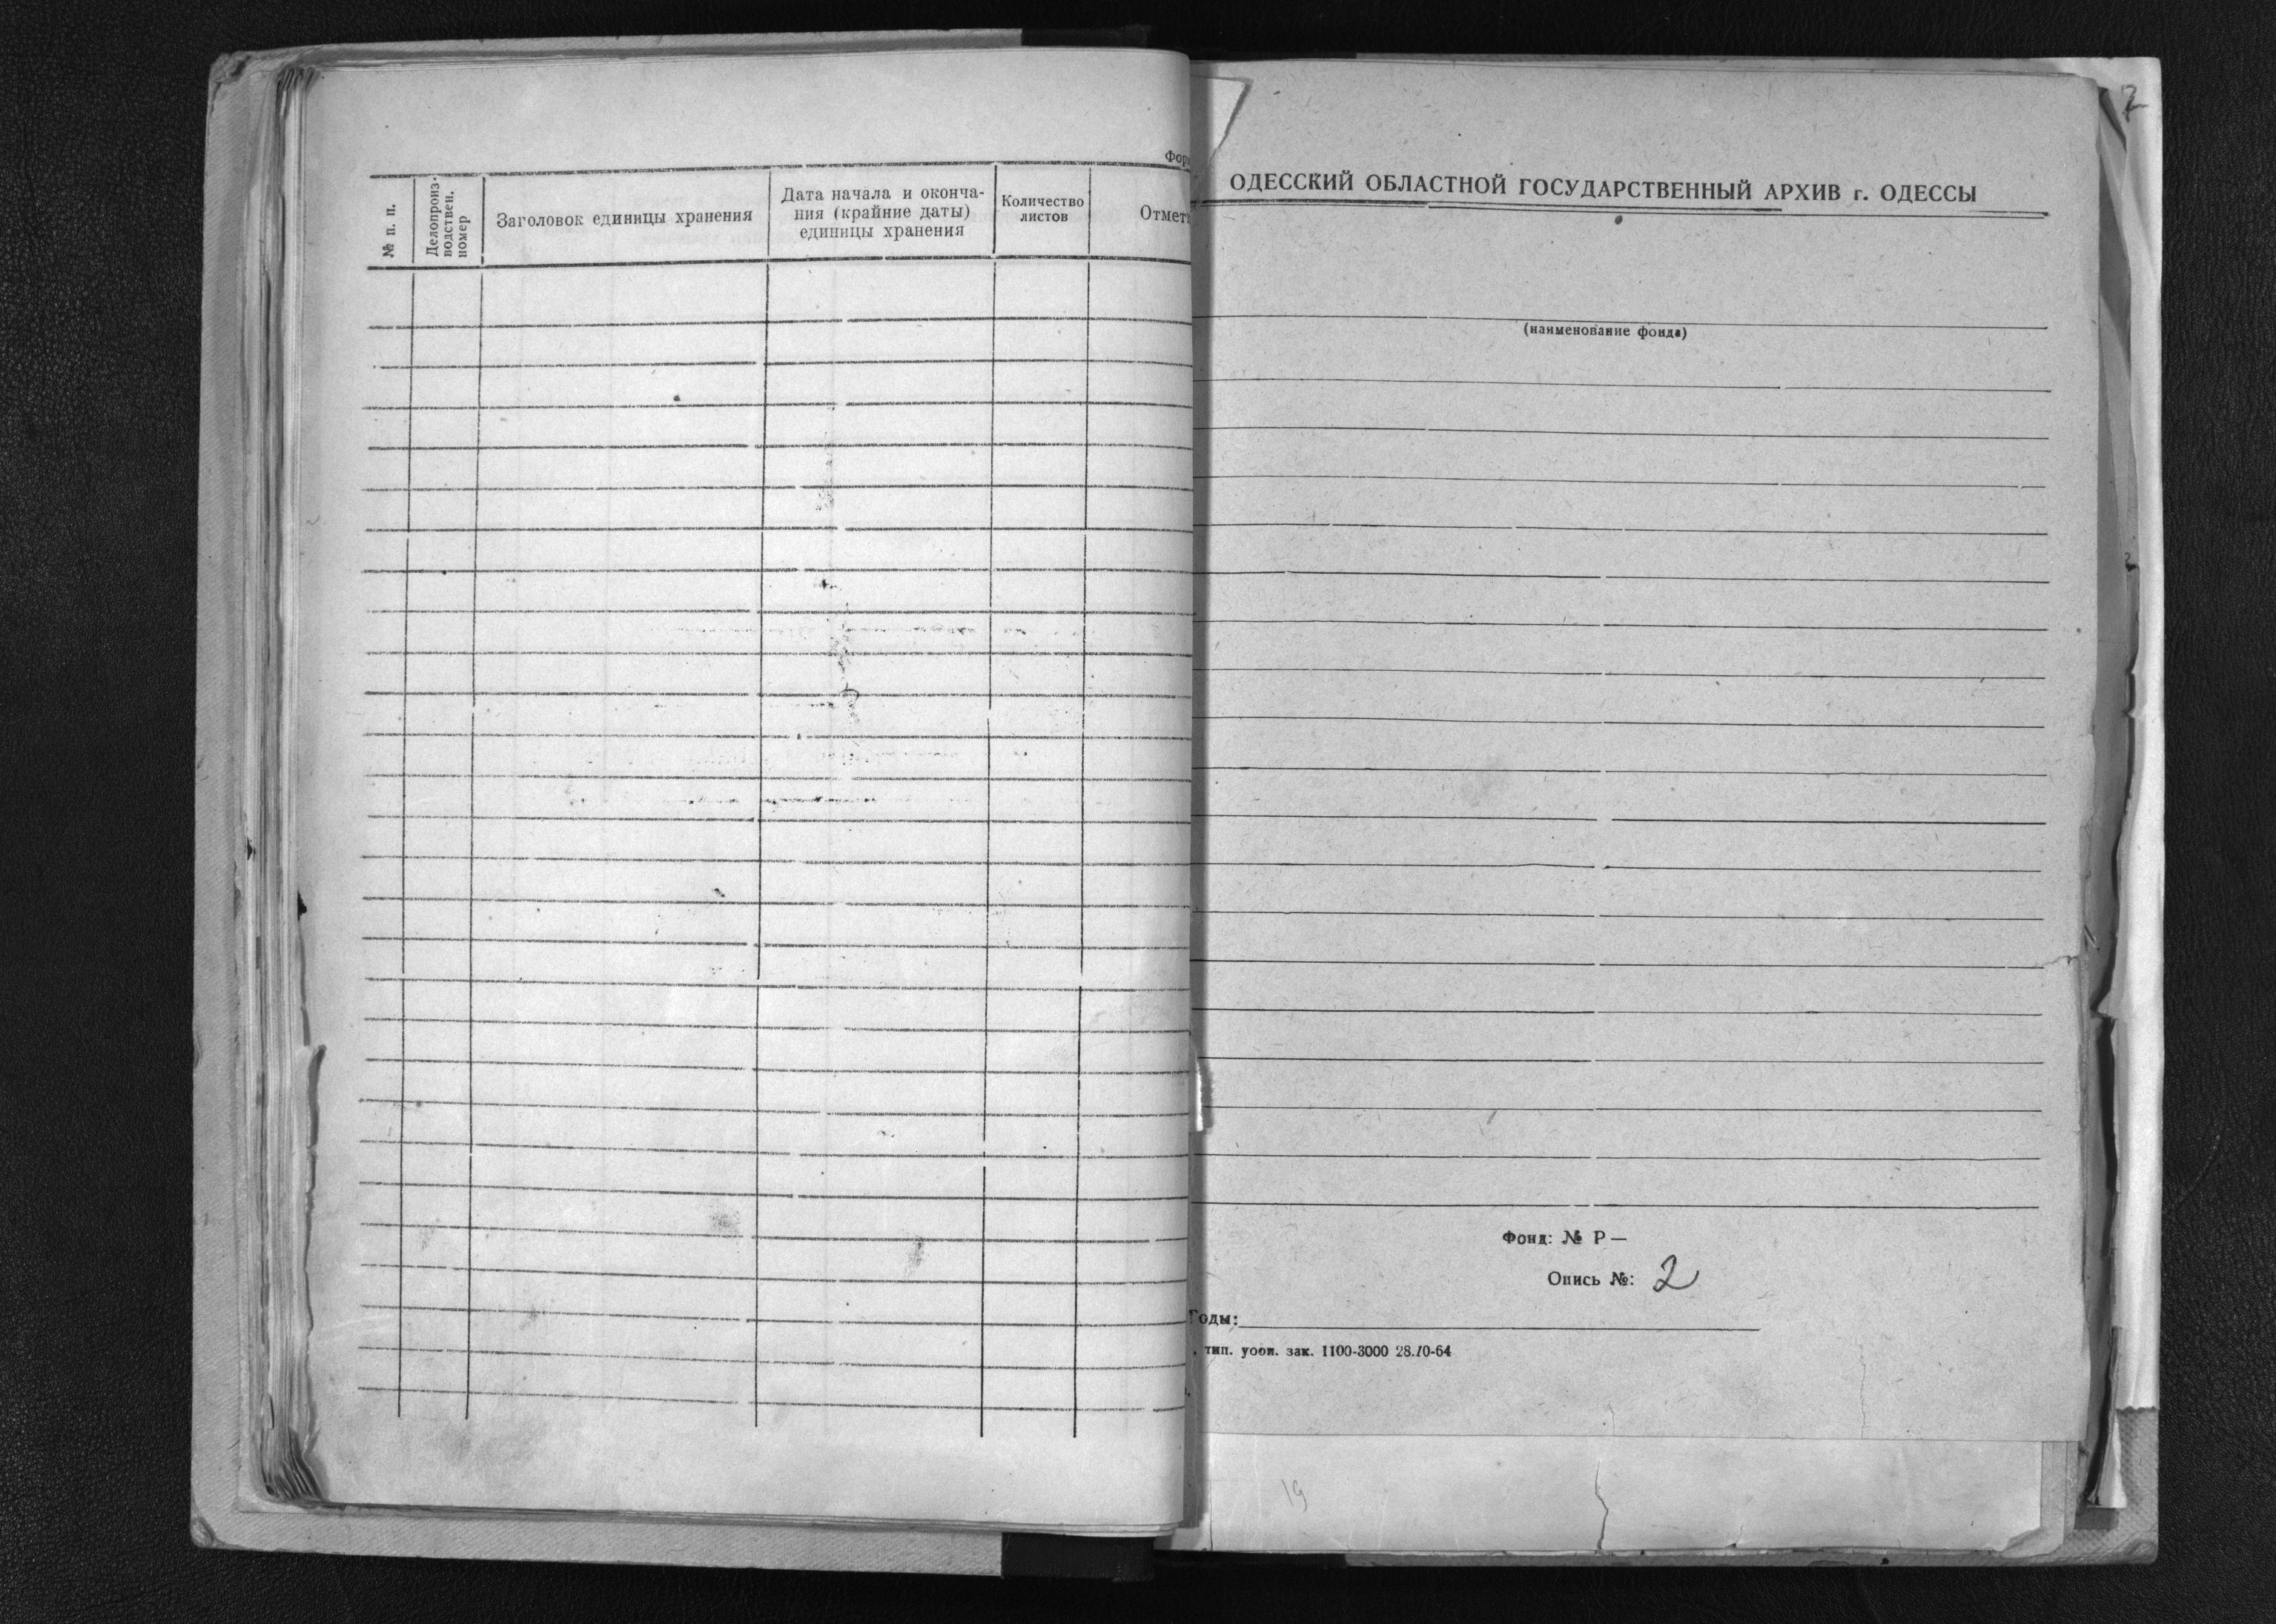 Форм
№ п. п.
Делопроиз-
водствен.
номер
Заголовок единицы хранения
Дата начала и оконча-
ния (крайние даты)
единицы хранения
Количество
листов
Отмет
2
ОДЕССКИЙ ОБЛАСТНОЙ ГОСУДАРСТВЕННЫЙ АРХИВ г. ОДЕССЫ
(наименование фонда)
Фонд: № Р —
Опись №: 2
Годы:
тип. зак. 1100-3000 28.10-64
19